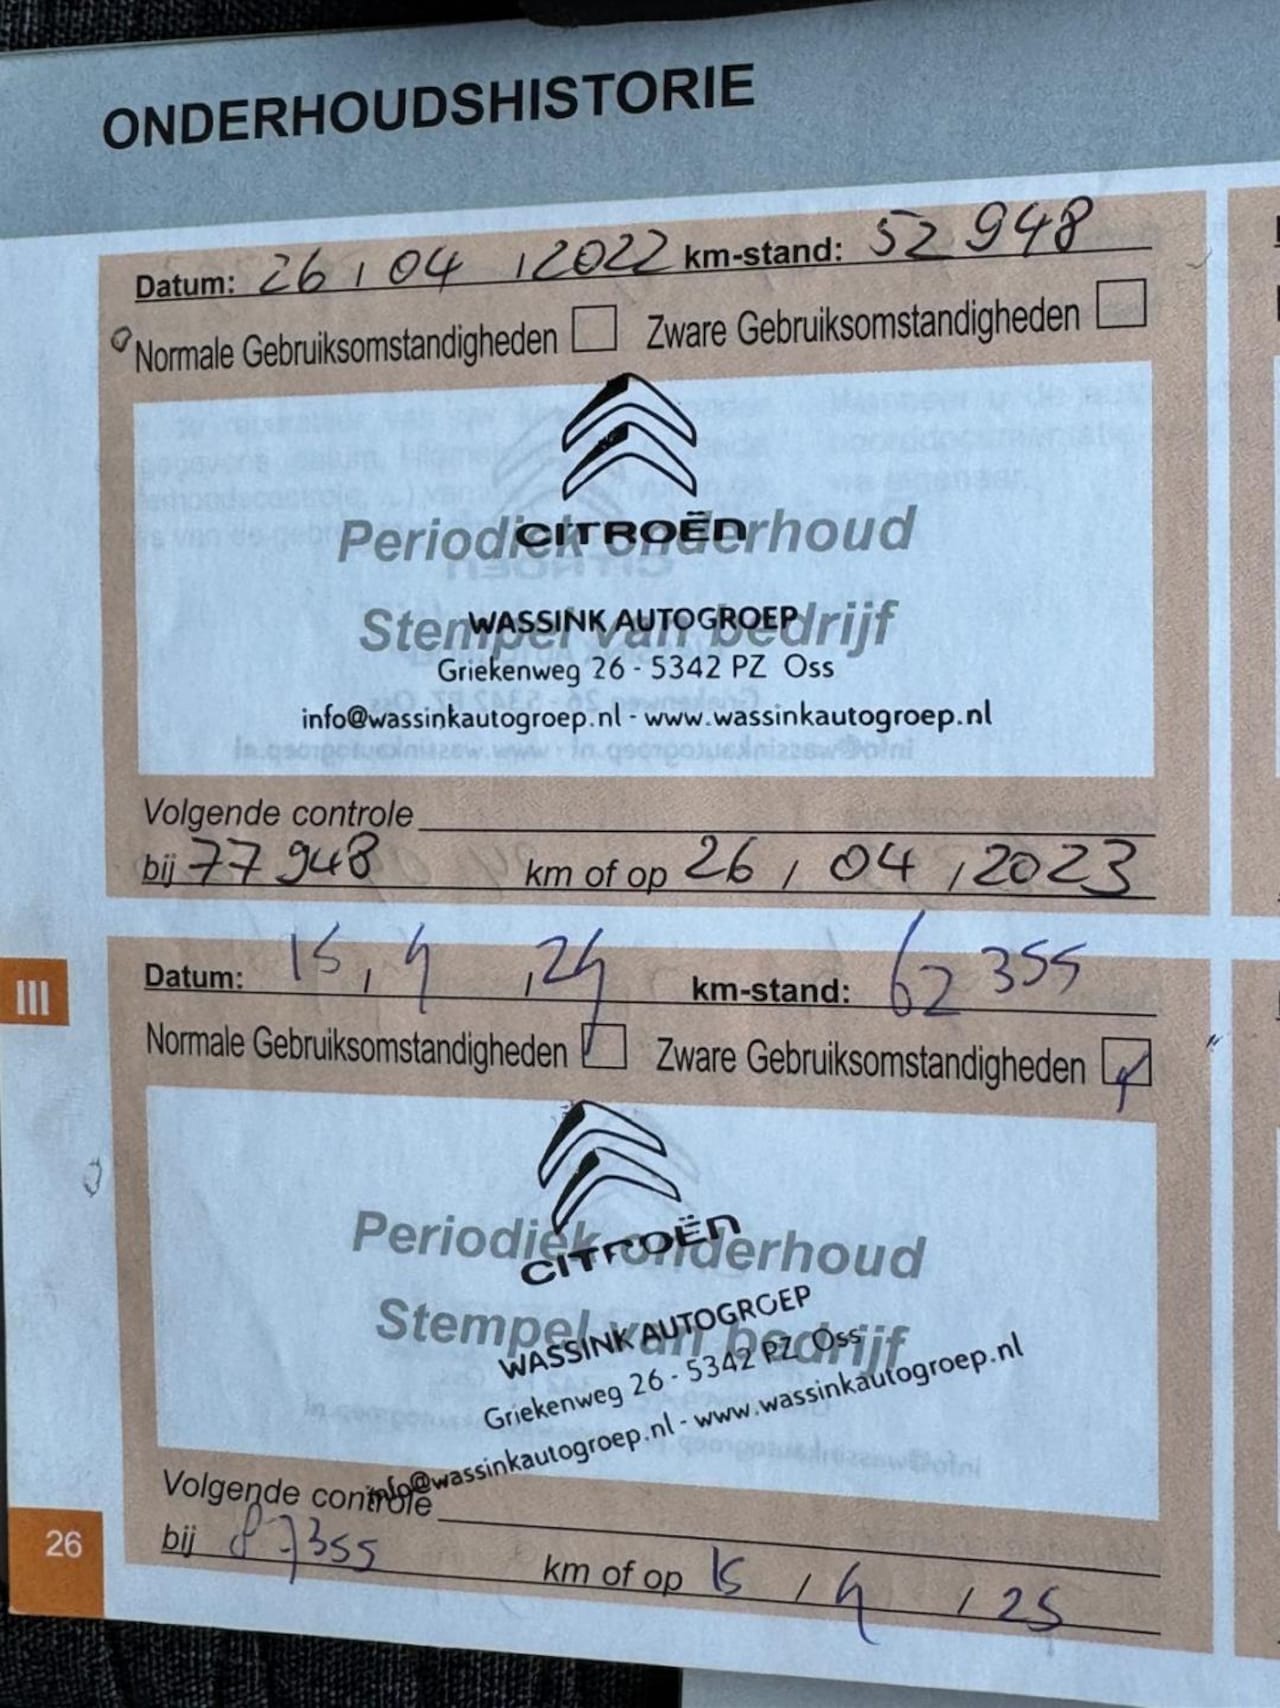 ONDERHOUDSHISTORIE
Datum: 26 , 04 , 2022 km-stand: 52 948
Normale Gebruiksomstandigheden Zware Gebruiksomstandigheden
CITROËN
Periodiek onderhoud
WASSINK AUTOGROEP
Stempel van bedrijf
Griekenweg 26 - 5342 PZ Oss
info@wassinkautogroep.nl - www.wassinkautogroep.nl
Volgende controle
bij 77 948 km of op 26 , 04 , 2023
III
Datum: 15 , 4 , 24 km-stand: 62 355
Normale Gebruiksomstandigheden Zware Gebruiksomstandigheden
Periodiek onderhoud
CITROËN
Stempel van bedrijf
WASSINK AUTOGROEP
Griekenweg 26 - 5342 PZ Oss
info@wassinkautogroep.nl - www.wassinkautogroep.nl
Volgende controle
bij 87355 km of op 15 , 4 , 25
26